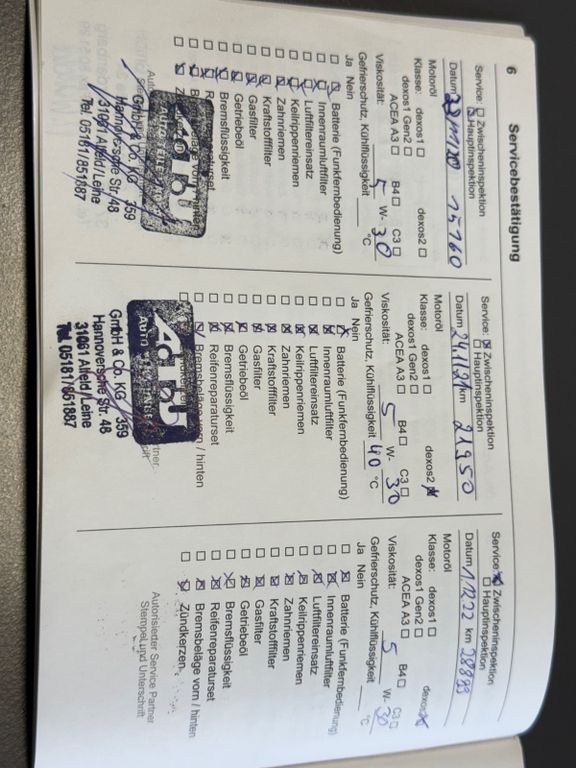 6
Servicebestätigung
Service: ☐ Zwischeninspektion
☒ Hauptinspektion
Datum 15160
Motoröl
Klasse: dexos1 ☐ dexos2 ☐
dexos1 Gen2 ☐
ACEA A3 ☐ B4 ☐ C3 ☐
Viskosität: 5 W- 30
Gefrierschutz, Kühlflüssigkeit °C
Ja Nein
Batterie (Funkfernbedienung)
Innenraumluftfilter
Luftfiltereinsatz
Keilrippenriemen
Zahnriemen
Kraftstofffilter
Gasfilter
Getriebeöl
Bremsflüssigkeit
GmbH & Co. KG 359
Hannoversche Str. 48
31061 Alfeld/Leine
Tel. 05181/851887
Service: ☒ Zwischeninspektion
☐ Hauptinspektion
Datum 24.1.21 km 21950
Motoröl
Klasse: dexos1 ☐ dexos2 ☒
dexos1 Gen2 ☐
ACEA A3 ☐ B4 ☐ C3 ☐
Viskosität: 5 W- 30
Gefrierschutz, Kühlflüssigkeit 40 °C
Ja Nein
Batterie (Funkfernbedienung)
Innenraumluftfilter
Luftfiltereinsatz
Keilrippenriemen
Zahnriemen
Kraftstofffilter
Gasfilter
Getriebeöl
Bremsflüssigkeit
Reifenreparaturset
Bremsbeläge vorn / hinten
GmbH & Co. KG 359
Hannoversche Str. 48
31061 Alfeld/Leine
Tel. 05181/851887
Service: ☒ Zwischeninspektion
☐ Hauptinspektion
Datum 1.12.22 km 28899
Motoröl
Klasse: dexos1 ☐ dexos2 ☒
dexos1 Gen2 ☐
ACEA A3 ☐ B4 ☐ C3 ☐
Viskosität: 5 W- 30
Gefrierschutz, Kühlflüssigkeit °C
Ja Nein
Batterie (Funkfernbedienung)
Innenraumluftfilter
Luftfiltereinsatz
Keilrippenriemen
Zahnriemen
Kraftstofffilter
Gasfilter
Getriebeöl
Bremsflüssigkeit
Reifenreparaturset
Bremsbeläge vorn / hinten
Zündkerzen
Autorisierter Service Partner
Stempel und Unterschrift